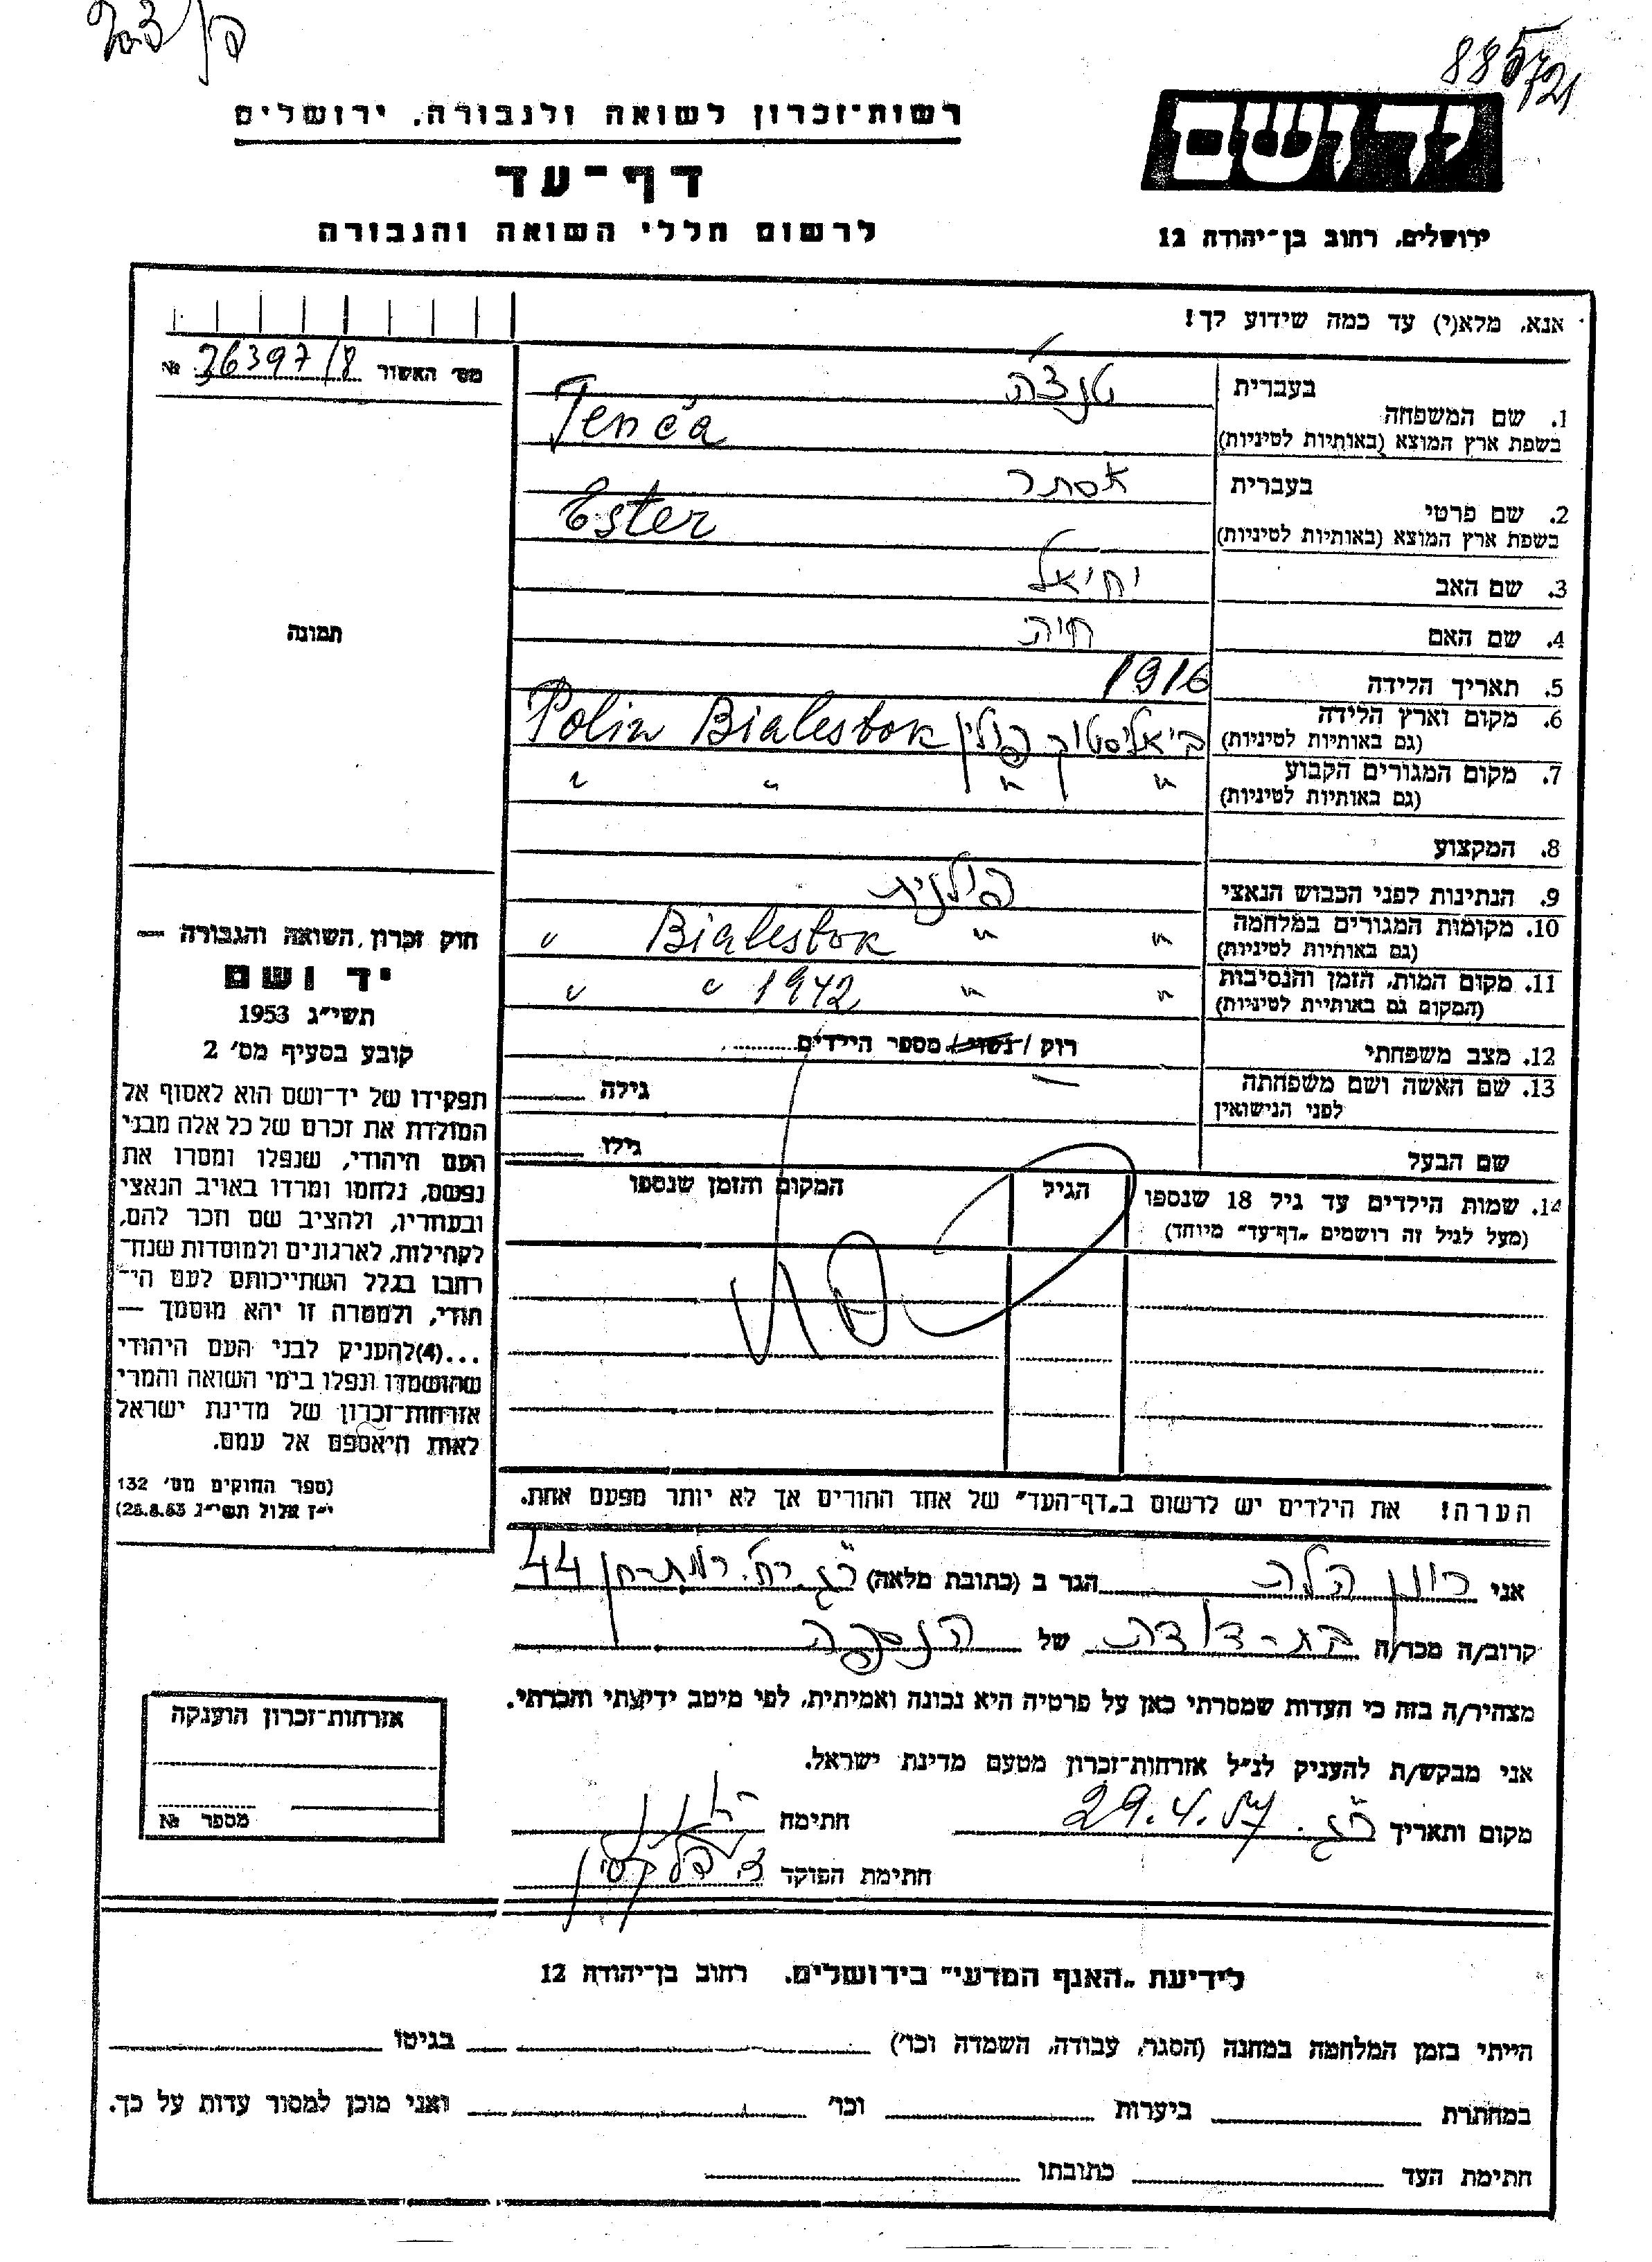 885721
רשות-זכרון לשואה ולגבורה, ירושלים
יד ושם
דף-עד
לרשום חללי השואה והגבורה
ירושלים, רחוב בן-יהודה 12
אנא, מלא(י) עד כמה שידוע לך!
מס' האשור 26397/8 №
1. שם המשפחה
בעברית טנצ'ה
בשפת ארץ המוצא (באותיות לטיניות) Tenća
2. שם פרטי
בעברית אסתר
בשפת ארץ המוצא (באותיות לטיניות) Ester
3. שם האב יחיאל
תמונה
4. שם האם חיה
5. תאריך הלידה 1916
6. מקום וארץ הלידה ביאליסטוק פולין Bialestok Polin
(גם באותיות לטיניות)
7. מקום המגורים הקבוע " " " "
(גם באותיות לטיניות)
8. המקצוע
9. הנתינות לפני הכבוש הנאצי פולנית
10. מקומות המגורים במלחמה " " Bialestok "
(גם באותיות לטיניות)
11. מקום המות, הזמן והנסיבות " " 1942 " "
(המקום גם באותיות לטיניות)
12. מצב משפחתי רוק / נשוי / מספר הילדים
13. שם האשה ושם משפחתה — גילה
לפני הנישואין
שם הבעל גילו
14. שמות הילדים עד גיל 18 שנספו הגיל המקום והזמן שנספו
(מעל לגיל זה רושמים "דף-עד" מיוחד)
חוק זכרון השואה והגבורה —
יד ושם
תשי"ג 1953
קובע בסעיף מס' 2
תפקידו של יד-ושם הוא לאסוף אל
המולדת את זכרם של כל אלה מבני
העם היהודי, שנפלו ומסרו את
נפשם, נלחמו ומרדו באויב הנאצי
ובעוזריו, ולהציב שם וזכר להם,
לקהילות, לארגונים ולמוסדות שנח-
רחבו בגלל השתייכותם לעם הי-
הודי, ולמטרה זו יהא מוסמך —
...(4)להעניק לבני העם היהודי
שהושמדו ונפלו בימי השואה והמרי
אזרחות-זכרון של מדינת ישראל
לאות היאספם אל עמם.
(ספר החוקים מס' 132
י"ז אלול תשי"ג 28.8.53)
הערה! את הילדים יש לרשום ב"דף-העד" של אחד ההורים אך לא יותר מפעם אחת.
אני הלה הגר ב (כתובת מלאה) ר"ג רח' 44
קרוב/ה מכר/ה בת-דודה של הנספה
מצהיר/ה בזה כי העדות שמסרתי כאן על פרטיה היא נכונה ואמיתית, לפי מיטב ידיעתי והכרתי.
אני מבקש/ת להעניק לנ"ל אזרחות-זכרון מטעם מדינת ישראל.
מקום ותאריך ר"ג. 29.4.57 חתימה
חתימת הפוקד
אזרחות-זכרון הוענקה
מספר №
לידיעת "האגף המדעי" בירושלים. רחוב בן-יהודה 12
הייתי בזמן המלחמה במחנה (הסגר, עבודה, השמדה וכו') בגיטו
במחתרת ביערות וכו' ואני מוכן למסור עדות על כך.
חתימת העד כתובתו